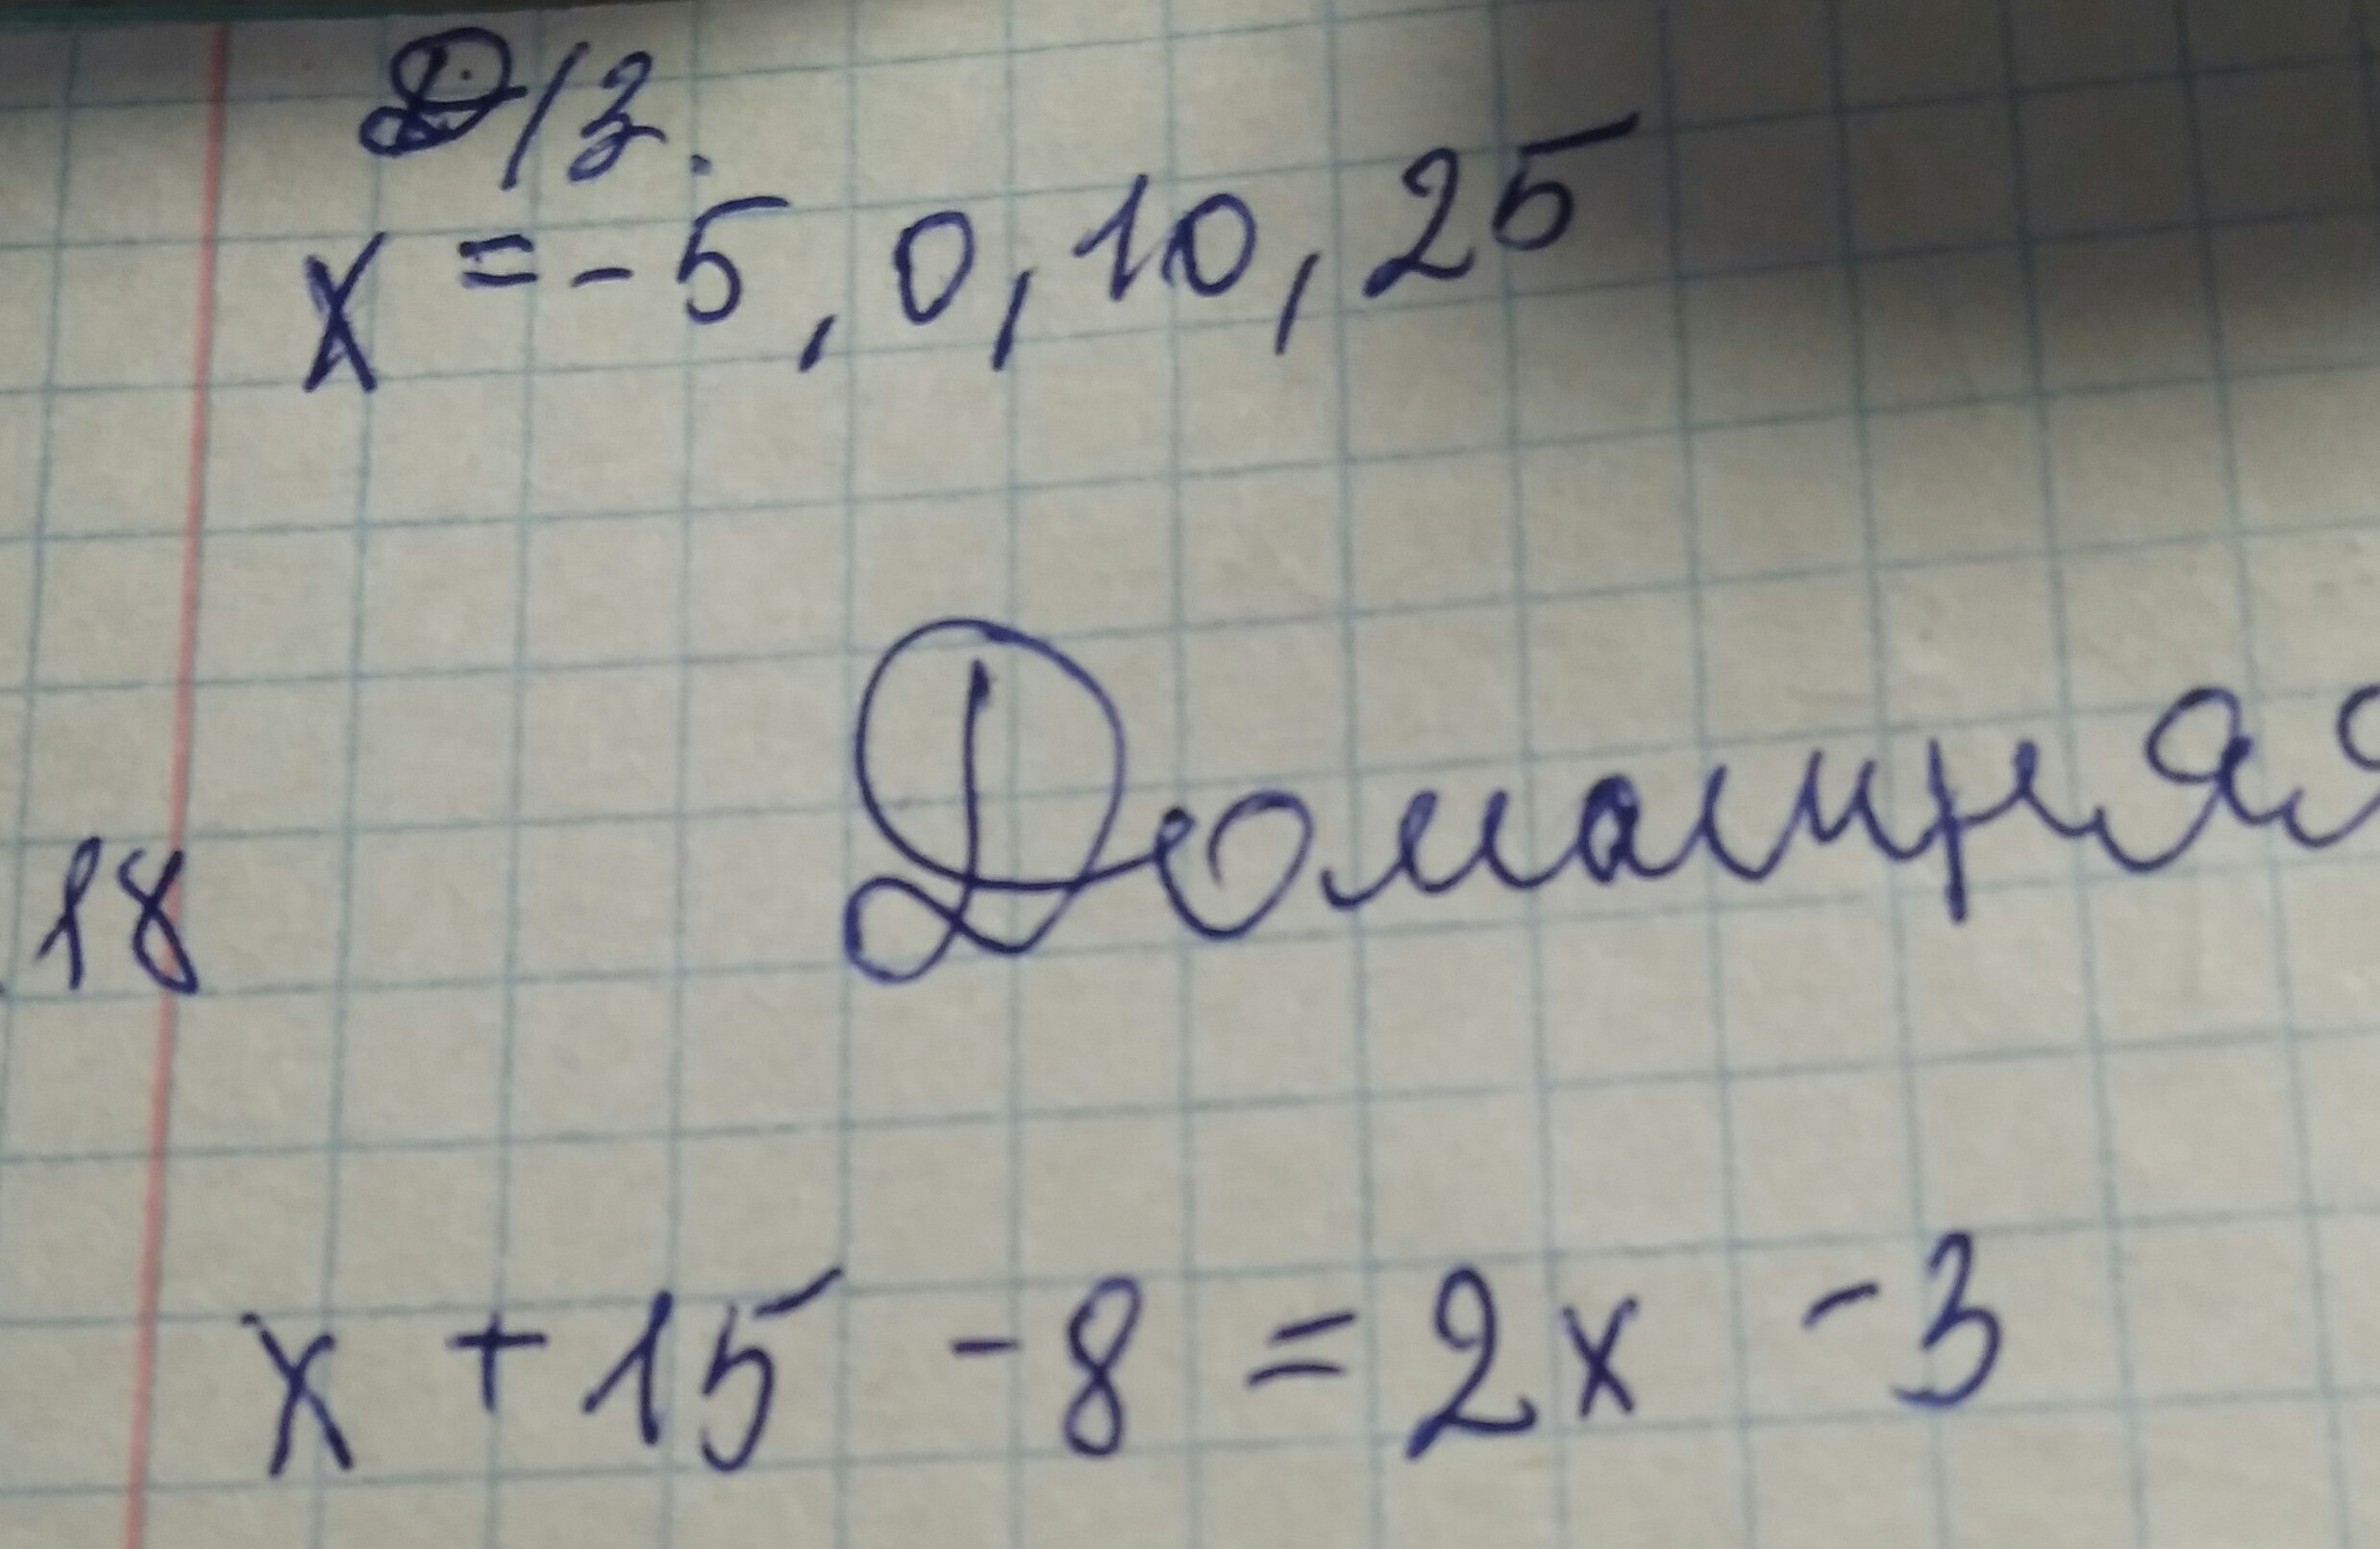 Д/з.
x = -5, 0, 10, 25
18 Домашняя
x + 15 - 8 = 2x - 3